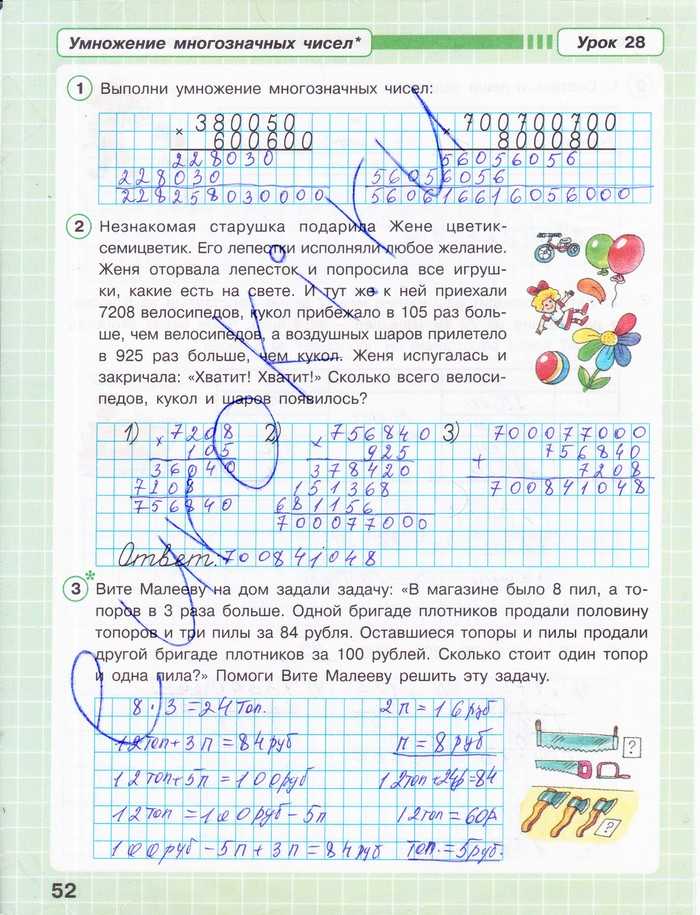 Умножение многозначных чисел*
Урок 28
1 Выполни умножение многозначных чисел:
× 380050
600600
228030
228030
228258030000
× 700700700
800080
56056056
56056056
560616616056000
2 Незнакомая старушка подарила Жене цветик-
семицветик. Его лепестки исполняли любое желание.
Женя оторвала лепесток и попросила все игруш-
ки, какие есть на свете. И тут же к ней приехали
7208 велосипедов, кукол прибежало в 105 раз боль-
ше, чем велосипедов, а воздушных шаров прилетело
в 925 раз больше, чем кукол. Женя испугалась и
закричала: «Хватит! Хватит!» Сколько всего велоси-
педов, кукол и шаров появилось?
1) × 7208
105
36040
7208
756840
2) × 756840
925
378420
151368
681156
700077000
3) 700077000
+ 756840
7208
700841048
Ответ: 700841048
3* Вите Малееву на дом задали задачу: «В магазине было 8 пил, а то-
поров в 3 раза больше. Одной бригаде плотников продали половину
топоров и три пилы за 84 рубля. Оставшиеся топоры и пилы продали
другой бригаде плотников за 100 рублей. Сколько стоит один топор
и одна пила?» Помоги Вите Малееву решить эту задачу.
8 · 3 = 24 топ.
12 топ + 3 п = 84 руб
12 топ + 5п = 100 руб
12 топ = 100 руб - 5п
100 руб - 5п + 3п = 84 руб
2 п = 16 руб
п = 8 руб
12 топ + 24р = 84
12 топ = 60р
топ. = 5 руб.
?
?
52